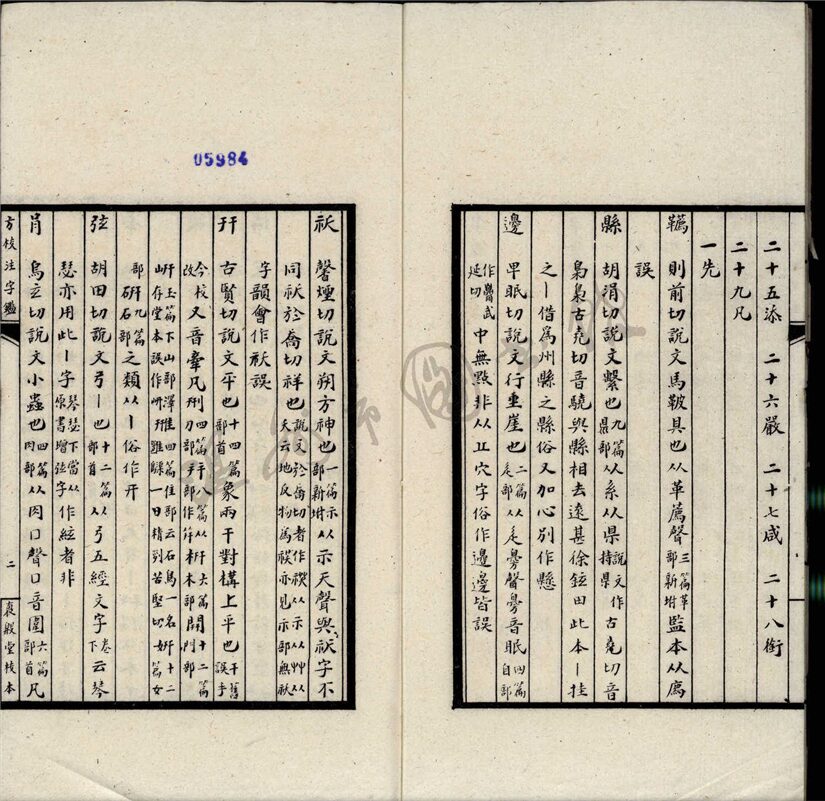 二十五添　二十六嚴　二十七咸　二十八銜
二十九凡
一先
韉　則前切說文馬鞁具也从革薦聲三篇革部新坿監本从廌
誤
縣　胡涓切說文繫也九篇県部从系从県說文作持県古堯切音
梟梟古堯切音驍與縣相去遠甚徐鉉曰此本｜挂
之｜借為州縣之縣俗又加心別作懸
邊　早眠切說文行垂崖也二篇辵部从辵臱聲臱音眠四篇自部
作臱武延切中無點非从丘穴字俗作邉邊皆誤
05984
祆　馨煙切說文朔方神也一篇示部新坿从示天聲與祅字不
同祅於喬切祥也說文於喬切者作䄏从示从艸从夭云地反物為祅亦見示部無祅
字韻會作祆誤
幵　古賢切說文平也十四篇部首象兩干對構上平也干舊誤手
今校改又音牽凡刑四篇刀部
部銒石部之類从｜俗作开
弦　胡田切說文弓｜也十二篇部首从弓五經文字卷下云琴
瑟亦用此｜字琴瑟下當从原書增弦字作絃者非
肙　烏玄切說文小蟲也四篇肉部从肉口聲口音圍六篇部首凡
方校注字鑑
二
裒殷堂校本